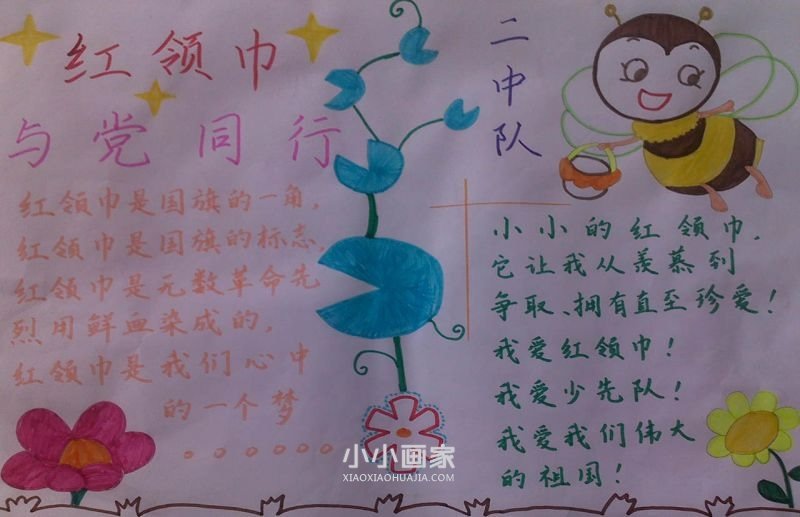 红领巾
与党同行
红领巾是国旗的一角,
红领巾是国旗的标志,
红领巾是无数革命先
烈用鲜血染成的,
红领巾是我们心中
的一个梦
。。。。。。
二中队
小小的红领巾,
它让我从羡慕到
争取、拥有直至珍爱!
我爱红领巾!
我爱少先队!
我爱我们伟大
的祖国!
小小画家
XIAOXIAOHUAJIA.COM